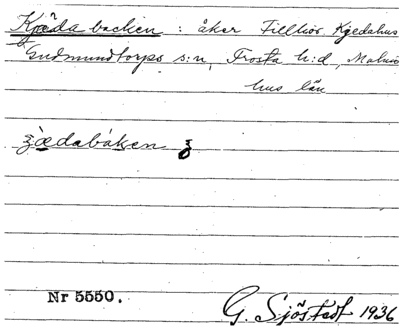 Kjæda backen : åker tillhör Kjedahus
Gudmundtorps s:n, Frosta h:d, Malmö
hus län
Nr 5550.
G. Sjöstedt 1936